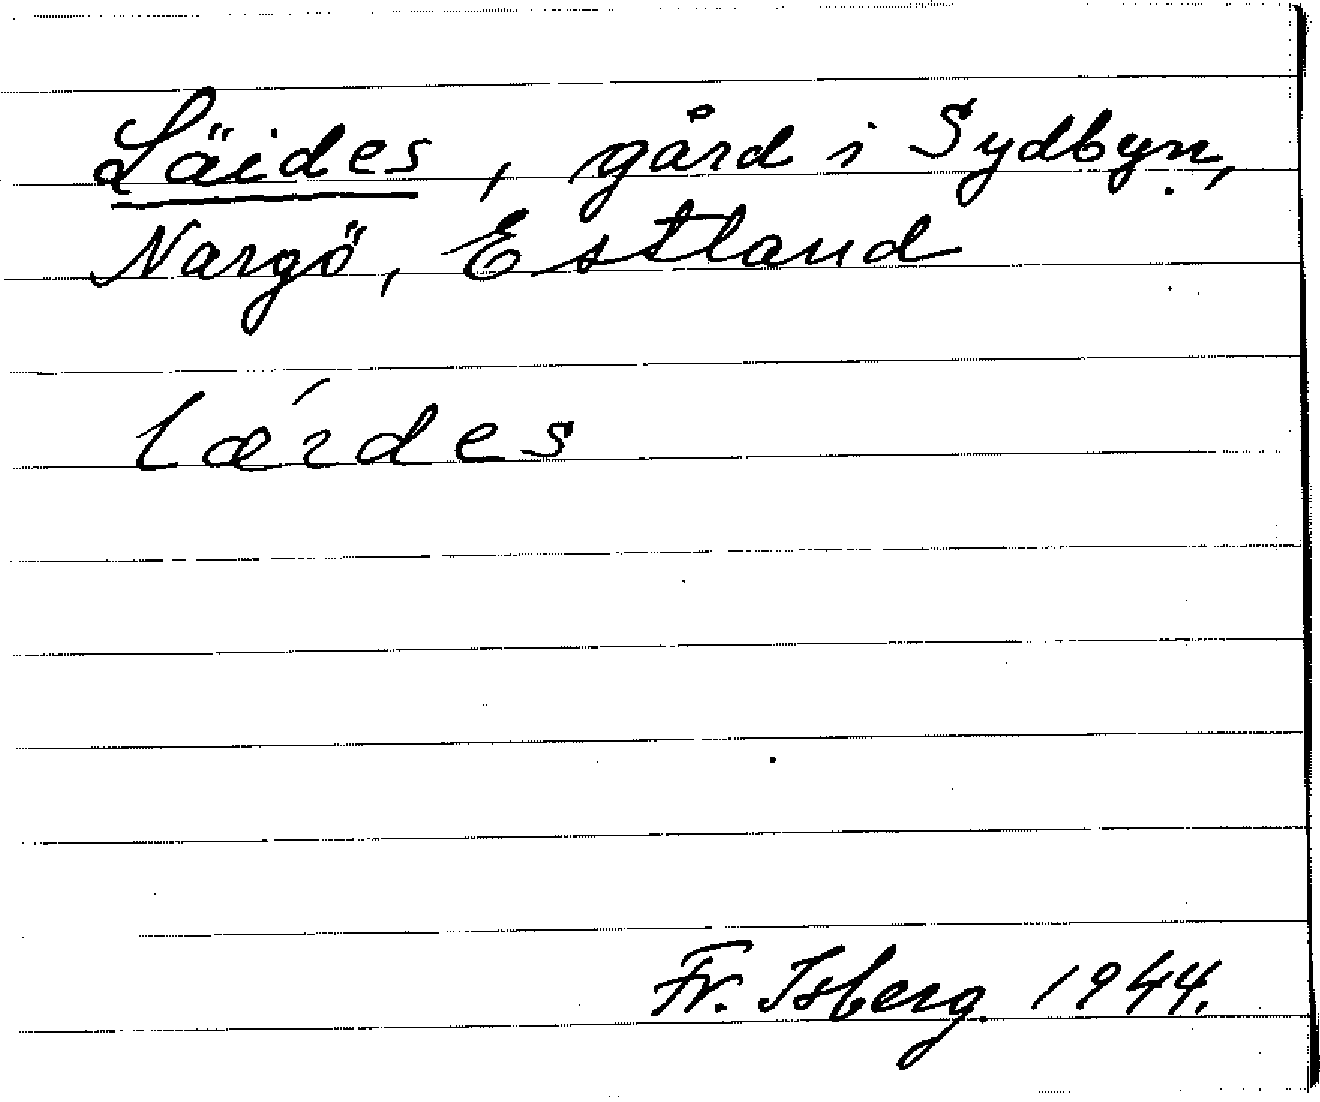 Läides, gård i Sydbyn,
Nargö, Estland
lǽɪdes
Fr. Isberg. 1944.